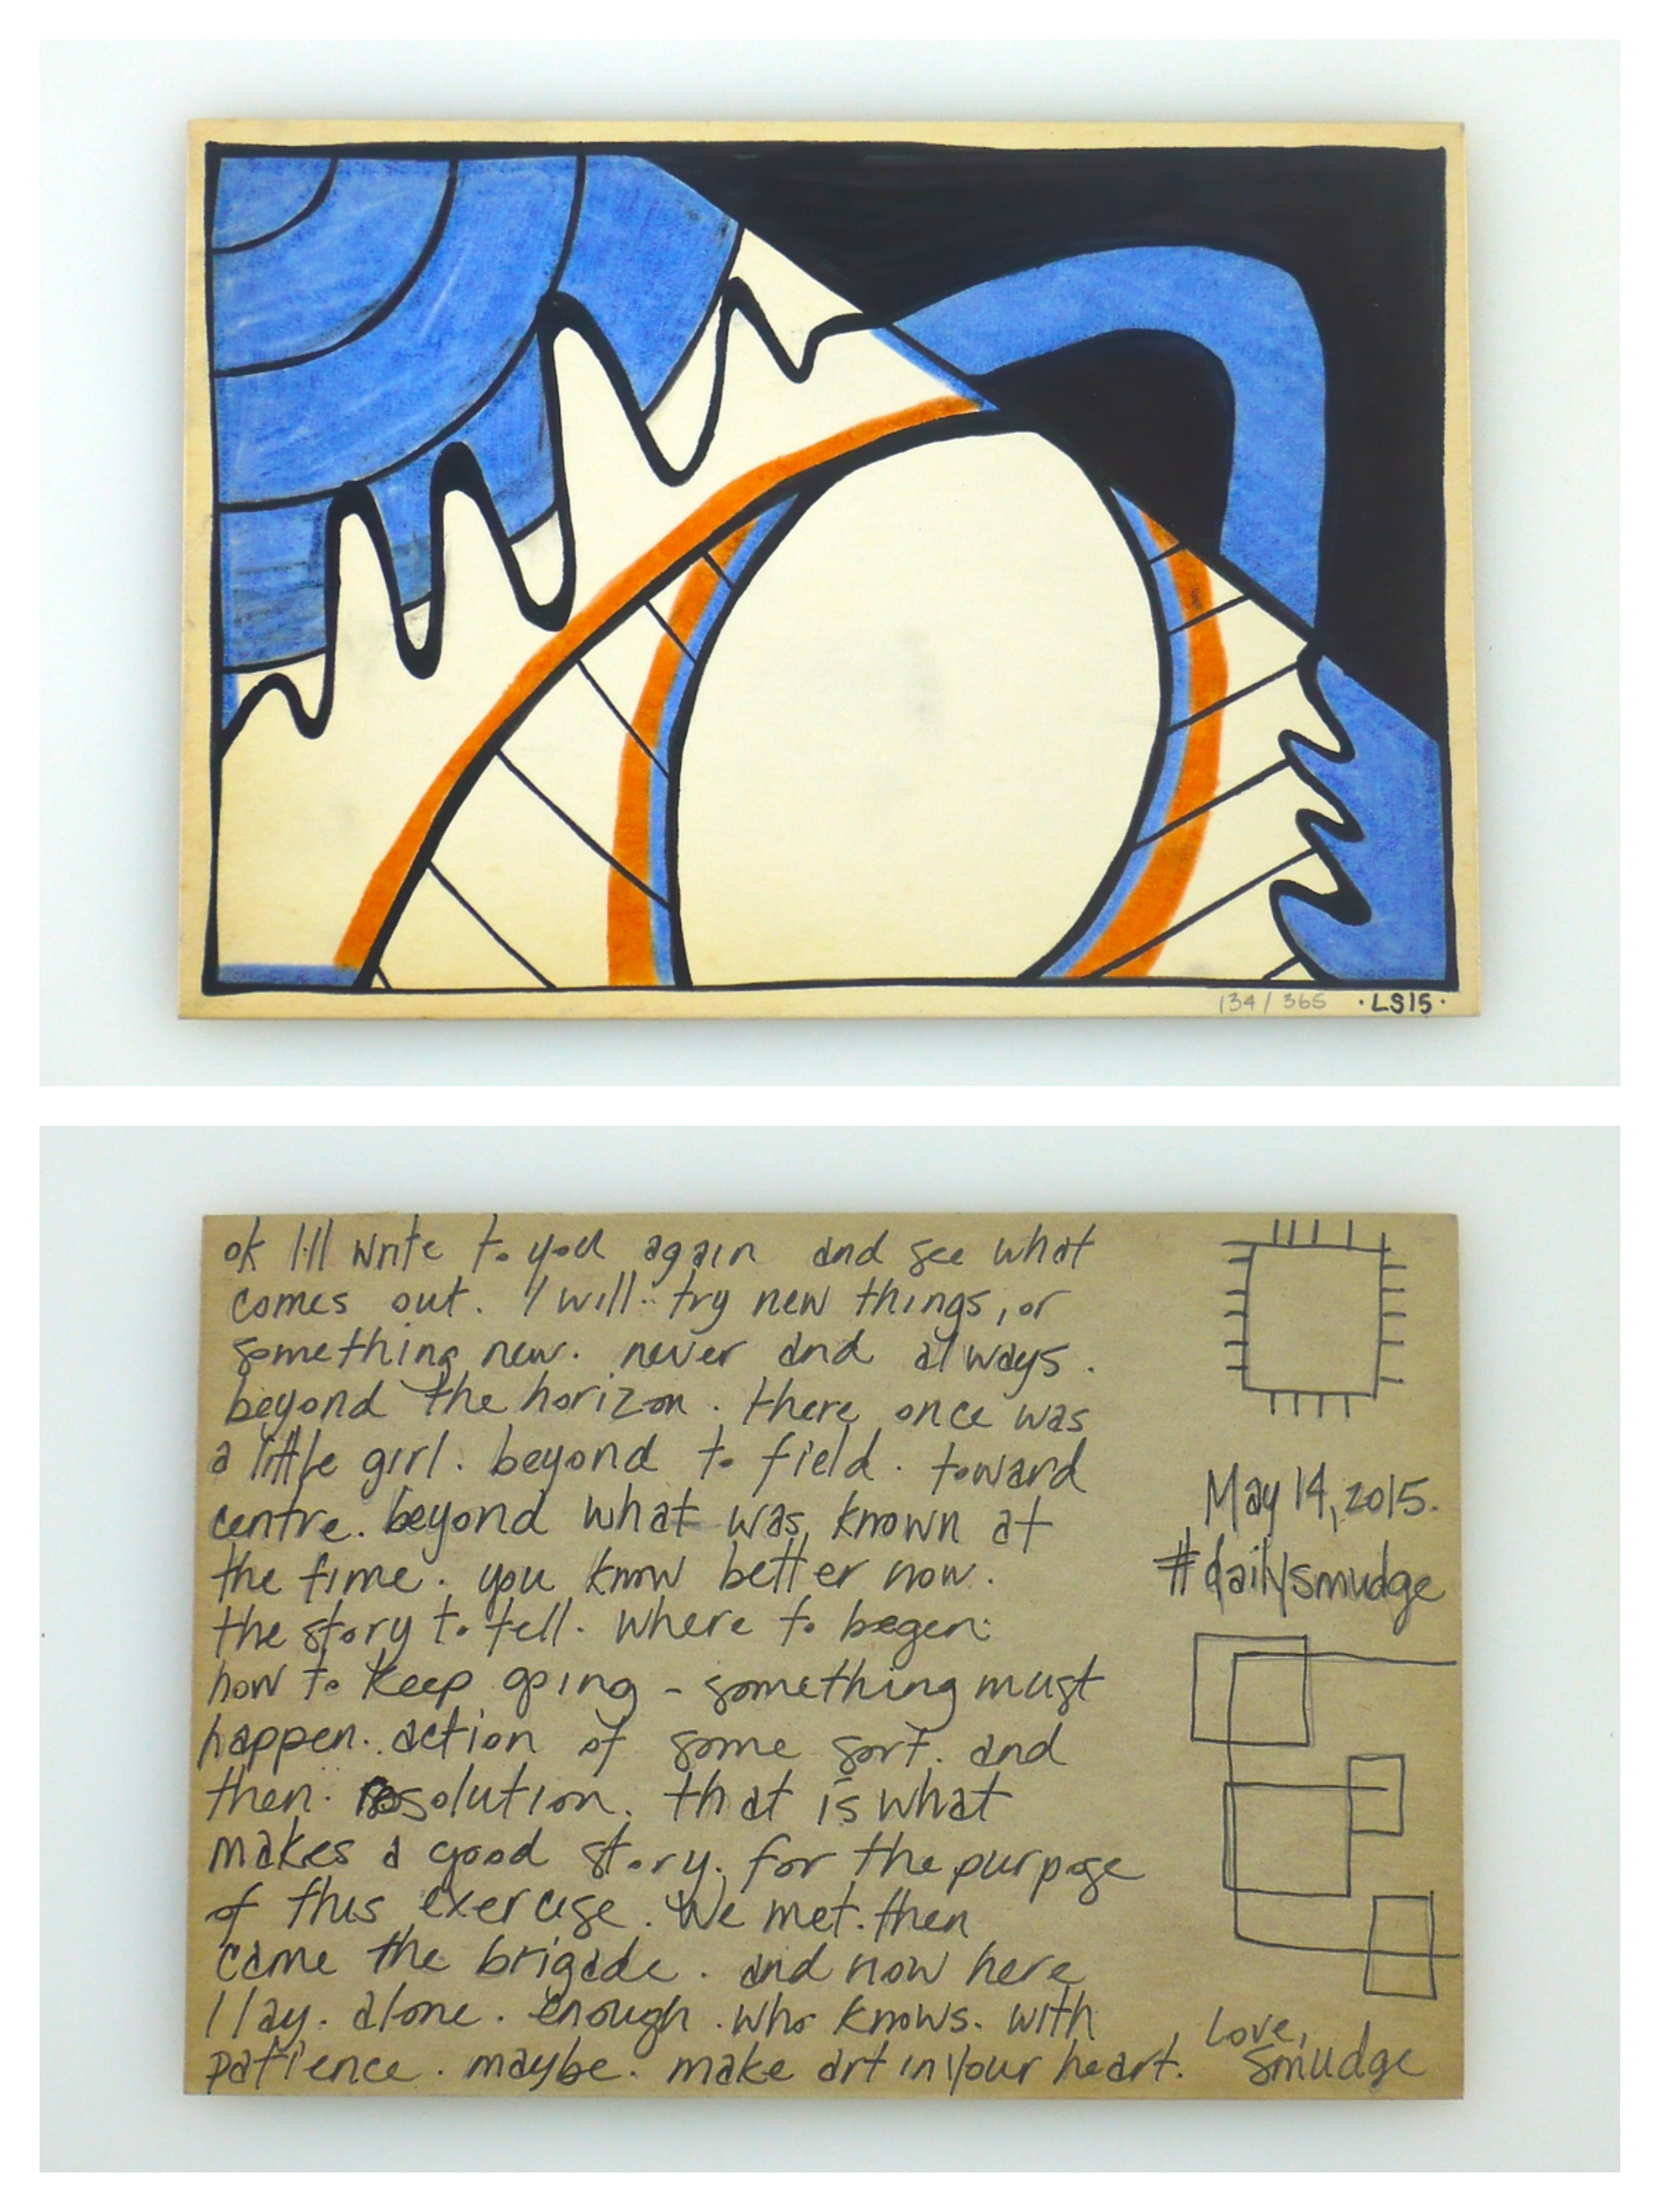 134/365 ·LS15·
ok I'll write to you again and see what
comes out. I will try new things, or
something new. never and always.
beyond the horizon. there once was
a little girl. beyond to field. toward
centre. beyond what was known at
the time. you know better now.
the story to tell. where to begen.
how to keep going - something must
happen. action of some sort. and
then. resolution. that is what
makes a good story. for the purpose
of this exercise. We met. then
came the brigade. and now here
I lay. alone. enough. who knows. with
patience. maybe. make art in your heart.
May 14, 2015.
#dailysmudge
Love,
smudge